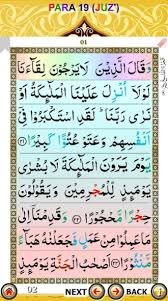 PARA 19 (JUZ')
01
وَقَالَ الَّذِيْنَ لَا يَرْجُوْنَ لِقَآءَنَا
لَوْلَآ اُنْزِلَ عَلَيْنَا الْمَلٰٓئِكَةُ اَوْ
نَرٰى رَبَّنَا ؕ لَقَدِ اسْتَكْبَرُوْا فِىْٓ
اَنْفُسِهِمْ وَعَتَوْ عُتُوًّا كَبِيْرًا ﴿۲۱﴾
يَوْمَ يَرَوْنَ الْمَلٰٓئِكَةَ لَا بُشْرٰى
يَوْمَئِذٍ لِّلْمُجْرِمِيْنَ وَيَقُوْلُوْنَ
حِجْرًا مَّحْجُوْرًا ﴿۲۲﴾ وَقَدِمْنَآ اِلٰى
مَا عَمِلُوْا مِنْ عَمَلٍ فَجَعَلْنٰهُ هَبَآءً
02 NEXT BACK